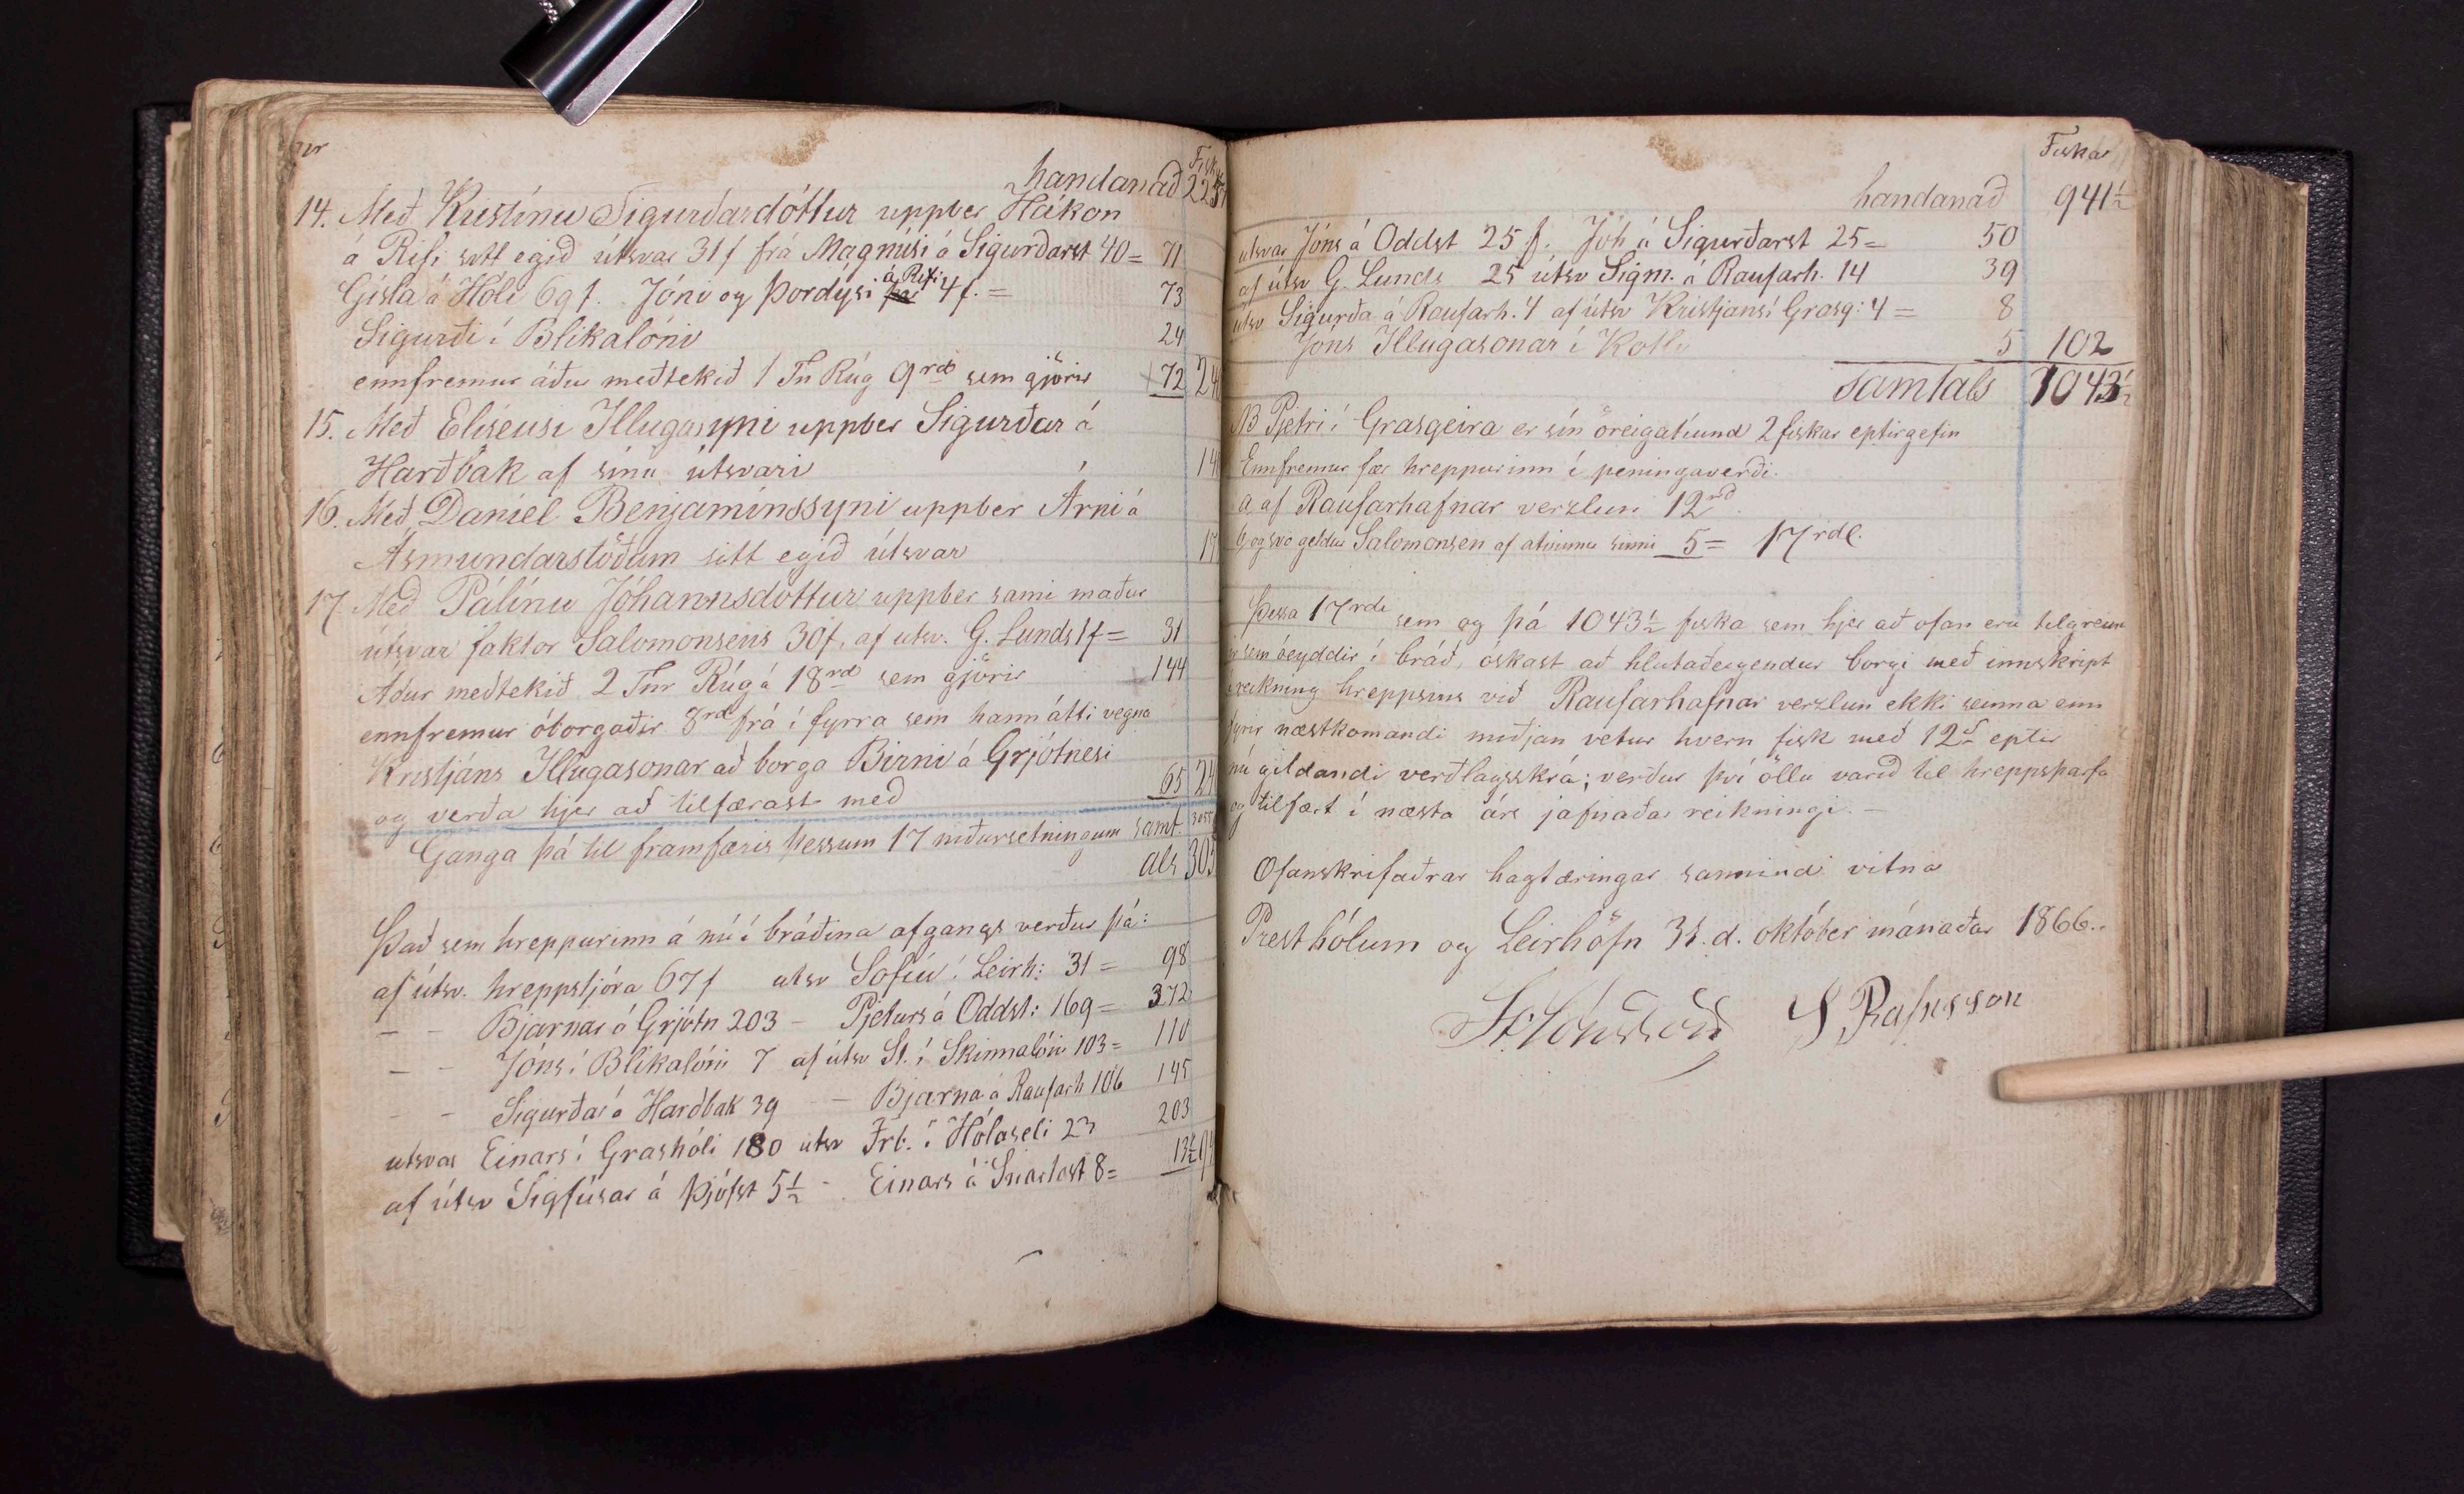 handanað
14. Með Kristínu Sigurðardóttur uppber Hákon
á Rifi sitt egið útsvar 31 f frá Magnúsi á Sigurðarst 40 = 71
Gísla á Hóli 69 f. Jóni og Þordýsi á Rifi 4 f. = 73
Sigurði í Blikalóni 24
ennfremur áður meðtekið 1 Tn Rúg 9 rd sem gjörir 72
15. Með Elíseusi Illugasyni uppber Sigurðar á
Harðbak af sínu útsvari
16. Með Daníel Benjamínssyni uppber Árni á
Ásmundarstöðum sitt egið útsvar
17 Með Pálínu Jóhannsdóttur uppber sami maður
útsvar faktor Salomonsens 30 f. af utsv. G. Lunds 1 f = 31
Áður meðtekið 2 Tnr Rúg á 18 rd sem gjörir 144
ennfremur óborgaðir 8 rd frá í fyrra sem hann átti vegna
Kristjáns Illugasonar að borga Birni á Grjótnesi
og verða hjer að tilfærast með 65
Ganga þá til framfæris þessum 17 niðursetningum samt.
als
Það sem hreppurinn á nú í bráðina afgangs verður þá:
af útsv. hreppstjóra 67 f utsv Sofíu í Leirh: 31 = 98
– – Bjarnar á Grjótn 203 – Pjeturs á Oddst: 169 = 372
– – Jóns í Blikalóni 7 af útsv St. í Skinnalóni 103 = 110
– – Sigurðar á Harðbak 39 – – Bjarna á Raufarh 106 145
utsvar Einars í Grashóli 180 utsv Frb. í Hólaseli 23 203
af útsv Sigfúsar á Þjófst 5½ – Einars á Snartast 8 = 13½
Fiskar
handanað 941½
utsvar Jóns á Oddst 25 f. Jóh á Sigurðarst 25 = 50
af útsv G. Lunds 25 útsv Sigm. á Raufarh. 14 39
útsv Sigurða á Raufarh. 4 af útsv Kristjáns í Grasg: 4 = 8
Jóns Illugasonar í 5 102
Samtals 1043½
NB Pjetri í Grasgeira er sín öreigatíund 2 fiskar eptirgefin
Ennfremur fær hreppurinn í peningaverði.
a af Raufarhafnar verzlun 12 rd.
b og svo geldur Salomonsen af atvinnu sinni 5 = 17 rdl.
Þessa 17 rdl sem og þá 1043½ fiska sem hjer að ofan eru tilgreind
ir sem óeyddir í bráð, óskast að hlutaðeigendur borgi með innskript
í reikning hreppsins við Raufarhafnar verzlun ekki seinna enn
fyrir næstkomandi miðjan vetur hvern fisk með 12 s eptir
nú gildandi verðlagsskrá; verður því öllu varið til hreppsþarfa
og tilfært í næsta árs jafnaðar reikningi. –
Ofanskrifaðrar hagtæringar sannindi vitna
Presthólum og Leirhöfn 31. d. október mánaðar 1866.
St. Jónsson S Rafnsson